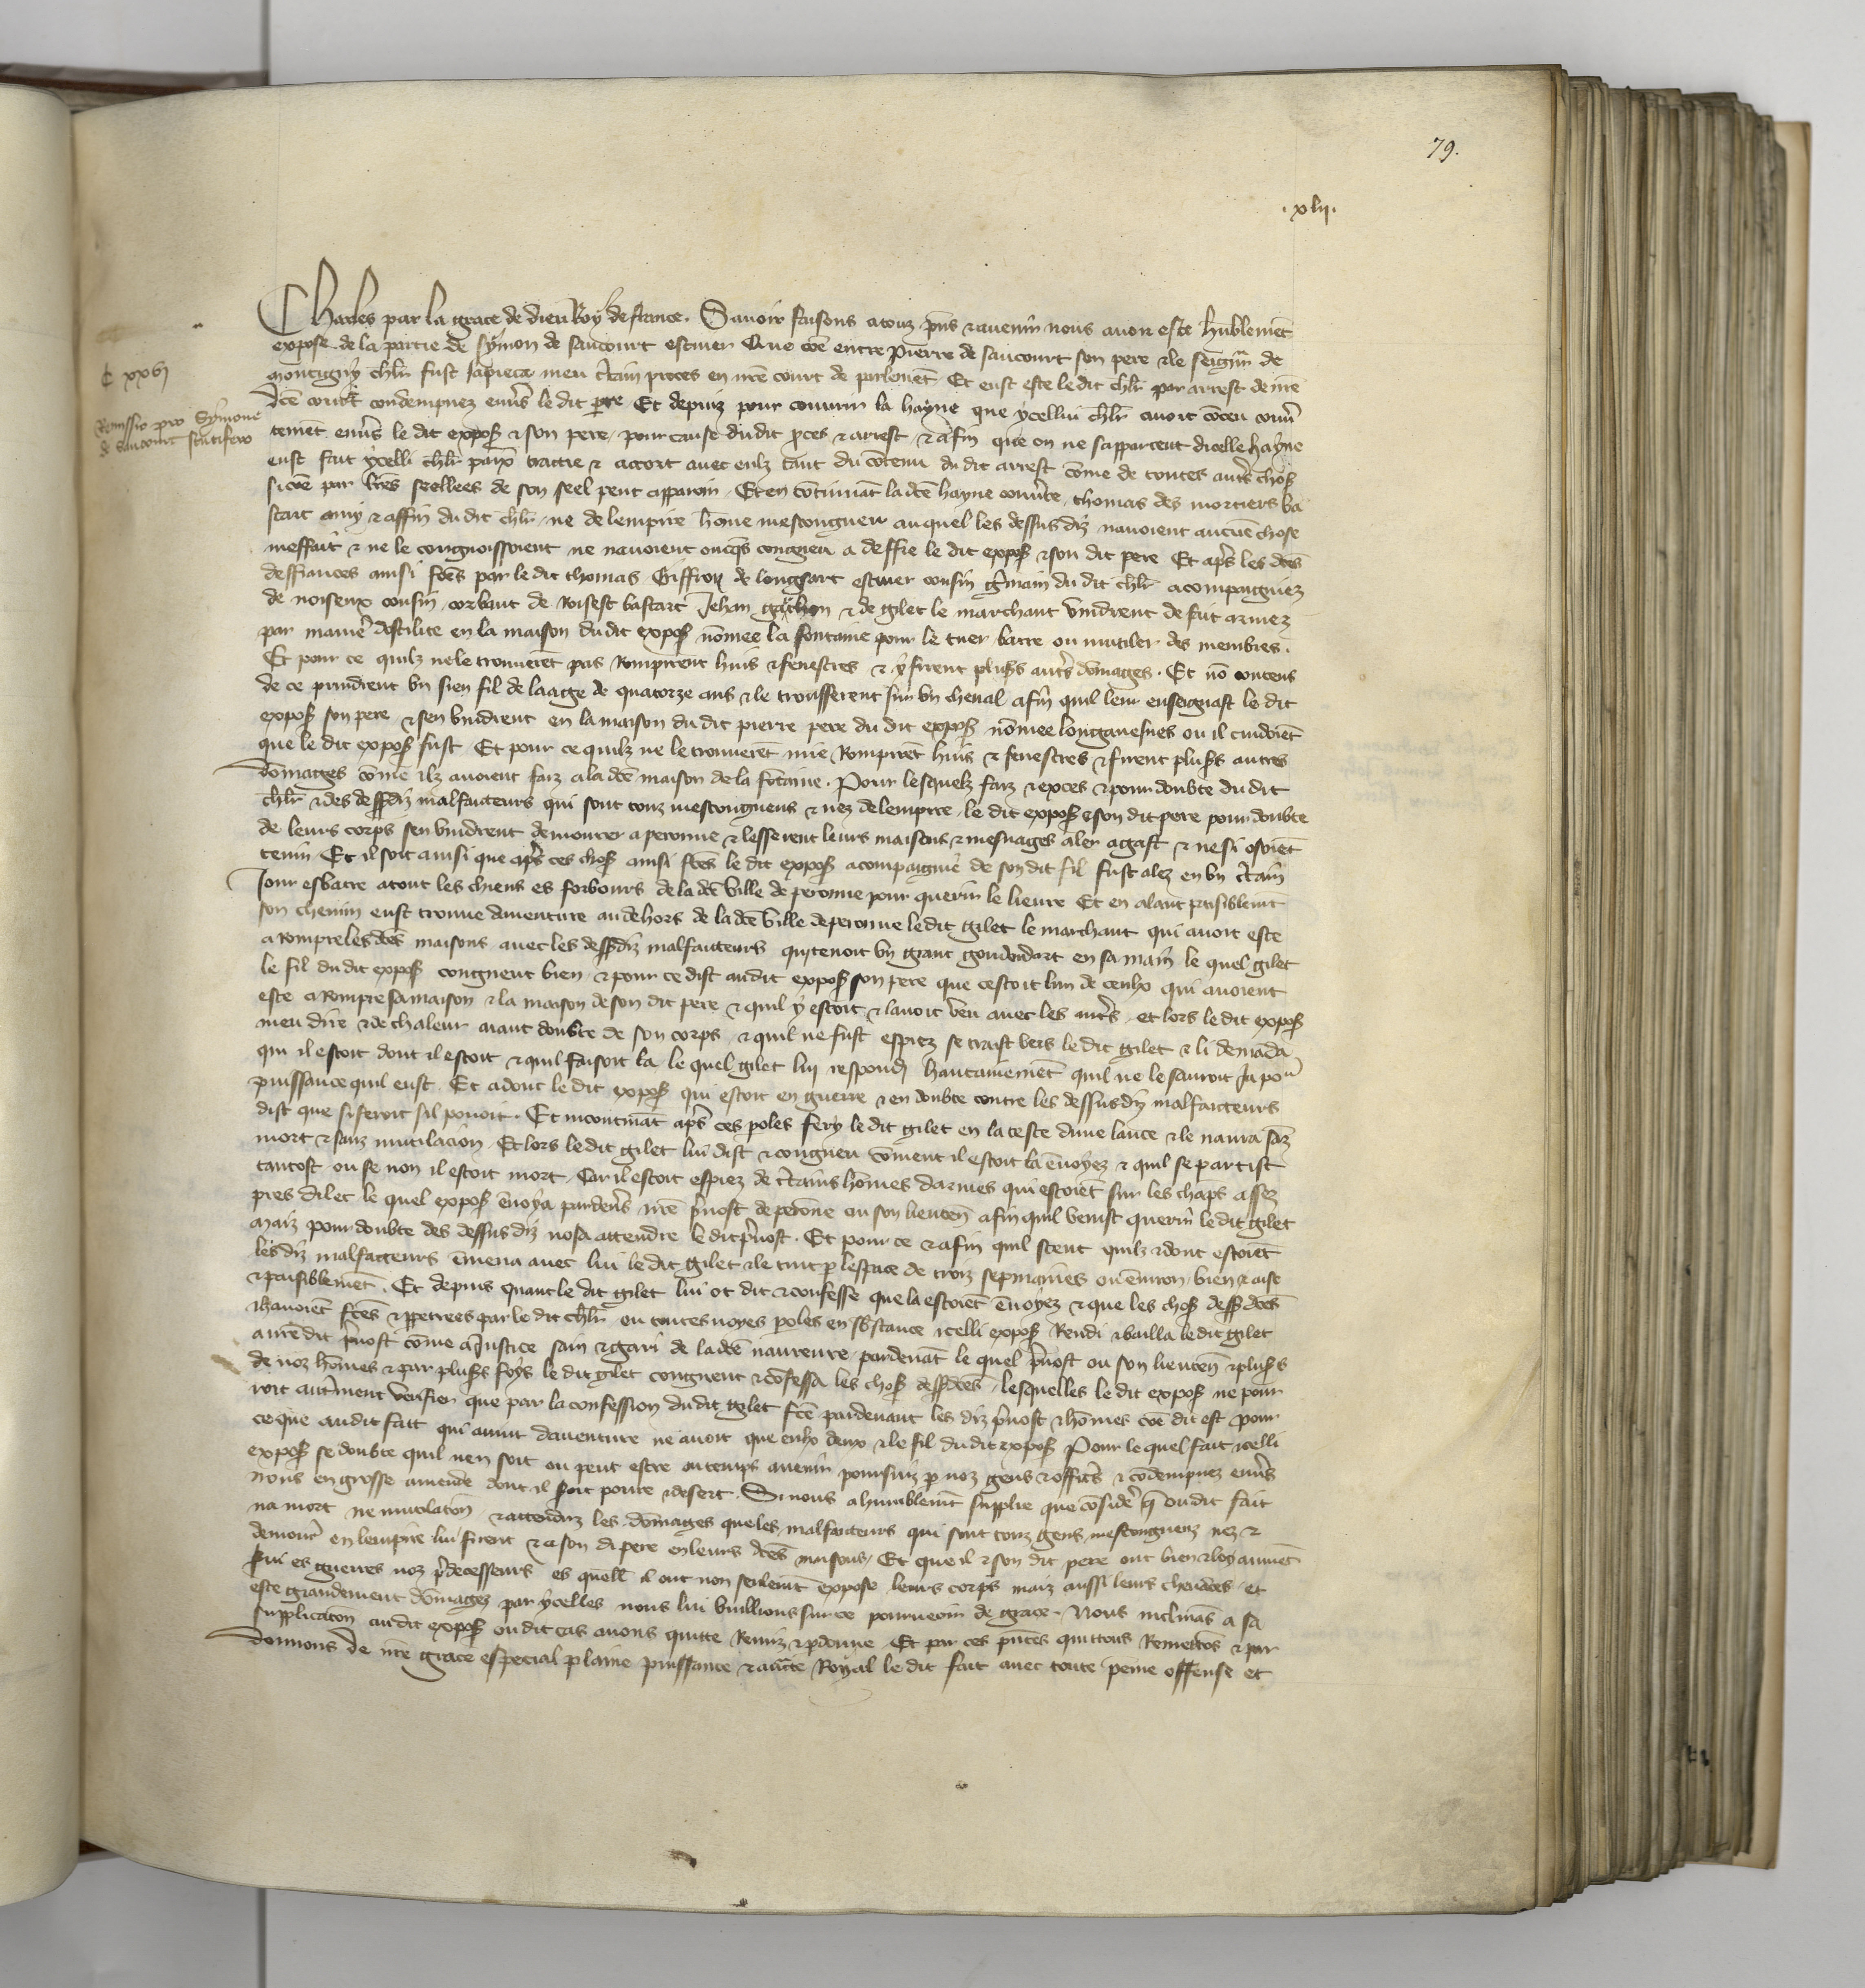 79.
.xlii.
C xxvi
Remissio pro Symone
de Saucourt scutifero
Charles par la grace de dieu Roy de france. Savoir faisons a touz pns et avenir nous avoir este humblemet
expose de la partie de Symon de Saucourt escuier Que coe entre Pierre de Saucourt son pere et le seigneur de
montigny chlr fust japieca meu ctain proces en nre court de parlemet Et eust este le dit chlr par arrest de nre
dce court condempnez envs le dit pere Et depuiz pour couvrir la hayne que ycellui chlr avoit coceu couv
temet envs le dit expos et son pere pour cause dudit pces et arrest et afin que on ne sapparceut dicelle hayne
eust fait ycelli chlr paix tractie et accort avec eulz tant du cotenu du dit arrest come de toutes autrs chos
si coe par lres seellees de son seel peut apparoir Et en cotinuat la dce hayne couvte thomas des mortiers ba
start amy et affin du dit chlr ne de lempire home mescongneu auquel les dessus diz navoient aucue chose
meffait et ne le congnoissoient ne navoient oncqs congneu a deffie le dit expos et son dit pere Et aprs les dces
deffiances ainsi fces par le dit thomas Giffron de longsart escuier cousin gmain du dit chlr acompaigniez
de noiseux cousin corbaut de Roisest bastart Jehan gachon et de gilet le marchant vindrent de fait armez
par maniere dostilite en la maison du dit expos nomee la fontaine pour le tuer batre ou mutiler des membres.
Et pour ce quilz ne le trouveret pas Rompirent huis et fenestres et y firent plusrs autrs domages. Et no contens
de ce prindrent un sien fil de laage de quatorze ans et le trousserent sur un cheval afin quil leur enseignast le dit
expos son pere et sen vindrent en la maison du dit pierre pere du dit expos nomee longavesnes ou il cuidoiet
que le dit expos fust Et pour ce quilz ne le trouveret mie Rompiret huis et fenestres et firent plusrs autres
domages come ilz avoient faiz a la dce maison de la fotaine. Pour lesquelz faiz et exces et pour doubte du dit
chlr et des dessdiz malfaiteurs qui sont touz mescongneus et nez de lempire le dit expos et son dit pere pour doubte
de leurs corps sen vindrent demourer a peronne et lesserent leurs maisons et mesnages aler a gast et ne si osoiet
tenir Et il soit ainsi que aprs ces chos ainsi fces le dit expos acompaignie de son dit fil fust alez en un ctain
Jour esbatre atout les chiens es forbours de la dce ville de peronne pour querir le lievre Et en alant paisiblemt
son chemin eust trouve daventure au dehors de la dce ville de peronne le dit gilet le marchant qui avoit este
a Rompre les dces maisons avec les dessdiz malfaiteurs qui tenoit un grant goudendart en sa main le quel gilet
le fil du dit expos congneut bien et pour ce dist audit expos son pere que cestoit lun de ceulx qui avoient
este a Rompre sa maison et la maison de son dit pere et quil y estoit et lavoit veu avec les autrs et lors le dit expos
meu dire et de chaleur aiant doubte de son corps et quil ne fust espiez se traist vers le dit gilet et li demada
qui il estoit dont il estoit et quil faisoit la le quel gilet luy respondi hautainemet quil ne le sauroit Ja pour
puissance quil eust. Et adont le dit expos qui estoit en guerre et en doubte contre les dessus diz malfaiteurs
dist que si feroit sil povoit. Et incontinat aprs ces poles fery le dit gilet en la teste dune lance et le navra saz
mort et sanz mutilacion Et lors le dit gilet lui dist et congneu coment il estoit la envoyez et quil se partist
tantost ou se non il estoit mort Car il estoit espiez de ctains homes darmes qui estoiet sur les chaps assez
pres dilec le quel expos envoya pardevs nre pvost de perone ou son lieuten afin quil venist querir le dit gilet
maiz pour doubte des dessus diz nosa attendre le dit pvost. Et pour ce et afin quil sceut quilz et dont estoiet
les diz malfaiteurs emena avec lui le dit gilet et le tint p lespace de troiz sepmaines ou environ bien et aise
et paisiblemet. Et depuis quant le dit gilet lui ot dit et confesse que la estoiet envoyez et que les chos dessdces
ilz avoiet fces et ppetrees par le dit chlr ou toutesvoyes poles en sbstance icelli expos Rendi et bailla le dit gilet
a nre dit pvost come a Justice sain et gari de la dce navreure pardevat le quel pvost ou son lieuten et plusrs
de noz homes et par plusrs foys le dit gilet congneut et cofessa les chos dessdces lesquelles le dit expos ne pour
roit autrment verifier que par la confession du dit gilet fce pardevant les diz pvost et homes coe dit est pour
ce que audit fait qui avint daventure ne avoit que eulx deux et le fil du dit expos Pour le quel fait icelli
expos se doubte quil nen soit ou peut estre ou temps avenir poursuiz p noz gens et officrs et codempnez envs
nous en grosse amende dont il soit povre et desert. Si nous a humblemt supplie que cosidere q ou dit fait
na mort ne mutilation et attenduz les domages que les malfaiteurs qui sont touz gens mescongneuz nez et
demour en lempire lui firent et a son di pere en leurs dces maisons Et que il et son dit pere ont bien et loyaumet
sui es guerres noz pdecesseurs es quell il ont non seulemt expose leurs corps maiz aussi leurs chevaces et
este grandement domagez par ycelles nous lui vuillions sur ce pourveoir de grace. Nous inclinas a sa
supplicaton audit expos ou dit cas avons quitte Remiz et pdonne Et par ces pntes quittons Remettos et par
donnons de nre grace especial plaine puissance et aucte Royal le dit fait avec toute peine offense et